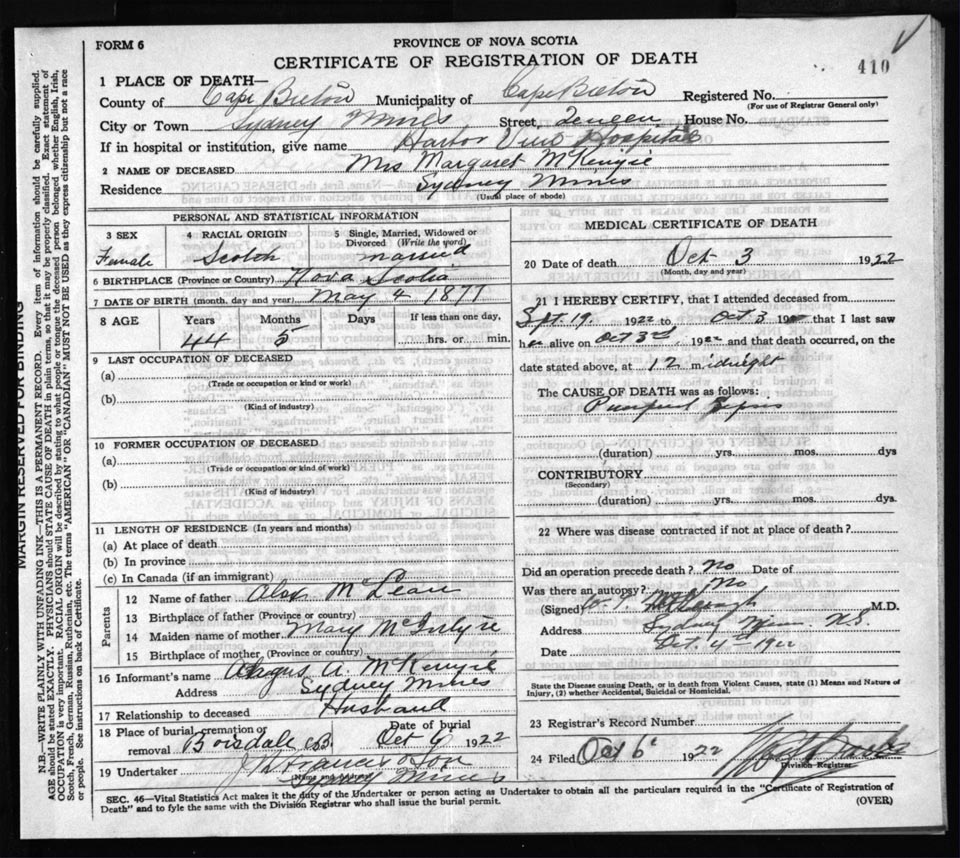 FORM 6
PROVINCE OF NOVA SCOTIA
CERTIFICATE OF REGISTRATION OF DEATH
410
1 PLACE OF DEATH—
County of Cape Breton Municipality of Cape Breton Registered No.
(For use of Registrar General only)
City or Town Sydney Mines Street, House No.
If in hospital or institution, give name Harbor View Hospital
2 NAME OF DECEASED Mrs Margaret McKenzie
Residence Sydney Mines
(Usual place of abode)
PERSONAL AND STATISTICAL INFORMATION
3 SEX 4 RACIAL ORIGIN 5 Single, Married, Widowed or Divorced (Write the word)
Female Scotch married
6 BIRTHPLACE (Province or Country) Nova Scotia
7 DATE OF BIRTH (month, day and year) May 4 1877
8 AGE Years Months Days If less than one day,
44 5 hrs. or min.
9 LAST OCCUPATION OF DECEASED
(a)
(Trade or occupation or kind or work)
(b)
(Kind of industry)
10 FORMER OCCUPATION OF DECEASED
(a)
(Trade or occupation or kind or work)
(b)
(Kind of industry)
11 LENGTH OF RESIDENCE (In years and months)
(a) At place of death
(b) In province
(c) In Canada (if an immigrant)
Parents
12 Name of father Alex McLean
13 Birthplace of father (Province or country)
14 Maiden name of mother Mary McIntyre
15 Birthplace of mother (Province or country)
16 Informant's name Angus A. McKenzie
Address Sydney Mines
17 Relationship to deceased Husband
18 Place of burial, cremation or removal Boisdale C.B. Date of burial Oct 6 1922
19 Undertaker & Son
Sydney Mines
MEDICAL CERTIFICATE OF DEATH
20 Date of death Oct 3 1922
(Month, day and year)
21 I HEREBY CERTIFY, that I attended deceased from
Sept. 19 1922 to Oct 3 1922 that I last saw
her alive on Oct 3rd, 1922 and that death occurred, on the
date stated above, at 12 midnight
The CAUSE OF DEATH was as follows:
(duration) yrs. mos. dys
CONTRIBUTORY
(Secondary)
(duration) yrs. mos. dys.
22 Where was disease contracted if not at place of death?
Did an operation precede death? No Date of
Was there an autopsy? No
(Signed) M.D.
Address Sydney Mines N.S.
Date Oct. 4th 1922
State the Disease causing Death, or in death from Violent Causes, state (1) Means and Nature of
Injury, (2) whether Accidental, Suicidal or Homicidal.
23 Registrar's Record Number
24 Filed Oct 6 1922
Division Registrar
SEC. 46—Vital Statistics Act makes it the duty of the Undertaker or person acting as Undertaker to obtain all the particulars required in the "Certificate of Registration of
Death" and to fyle the same with the Division Registrar who shall issue the burial permit.
(OVER)
MARGIN RESERVED FOR BINDING
N.B.—WRITE PLAINLY WITH UNFADING INK—THIS IS A PERMANENT RECORD. Every item of information should be carefully supplied.
AGE should be stated EXACTLY. PHYSICIANS should STATE CAUSE OF DEATH in plain terms, so that it may be properly classified. Exact statement of
OCCUPATION is very important. RACIAL ORIGIN will be described by stating to what people or tongue the deceased person belonged whether English, Irish,
Scotch, French, German, Russian, Ruthenian, etc. The terms "AMERICAN" OR "CANADIAN" MUST NOT BE USED as they express citizenship but not a race
or people. See instructions on back of Certificate.